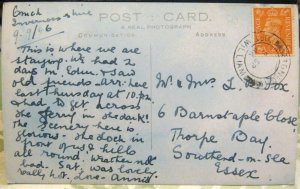 Ensick
Inverness-shire
9-9/56
POST CARD.
A REAL PHOTOGRAPH
COMMUNICATION.
This is where we
are staying. We had 2
days in Edin. & saw
old friends. Arr. here
last Thursday at 10.p.m.
& had to get across
the ferry in the dark!
The scenery here is
glorious & the loch in
front of us & hills
all round. Weather not
bad, Sat. was lovely
really hot. love Annie
Mr & Mrs L. Fox
6 Barnstaple Close
Thorpe Bay
Southend-on-Sea
Essex.